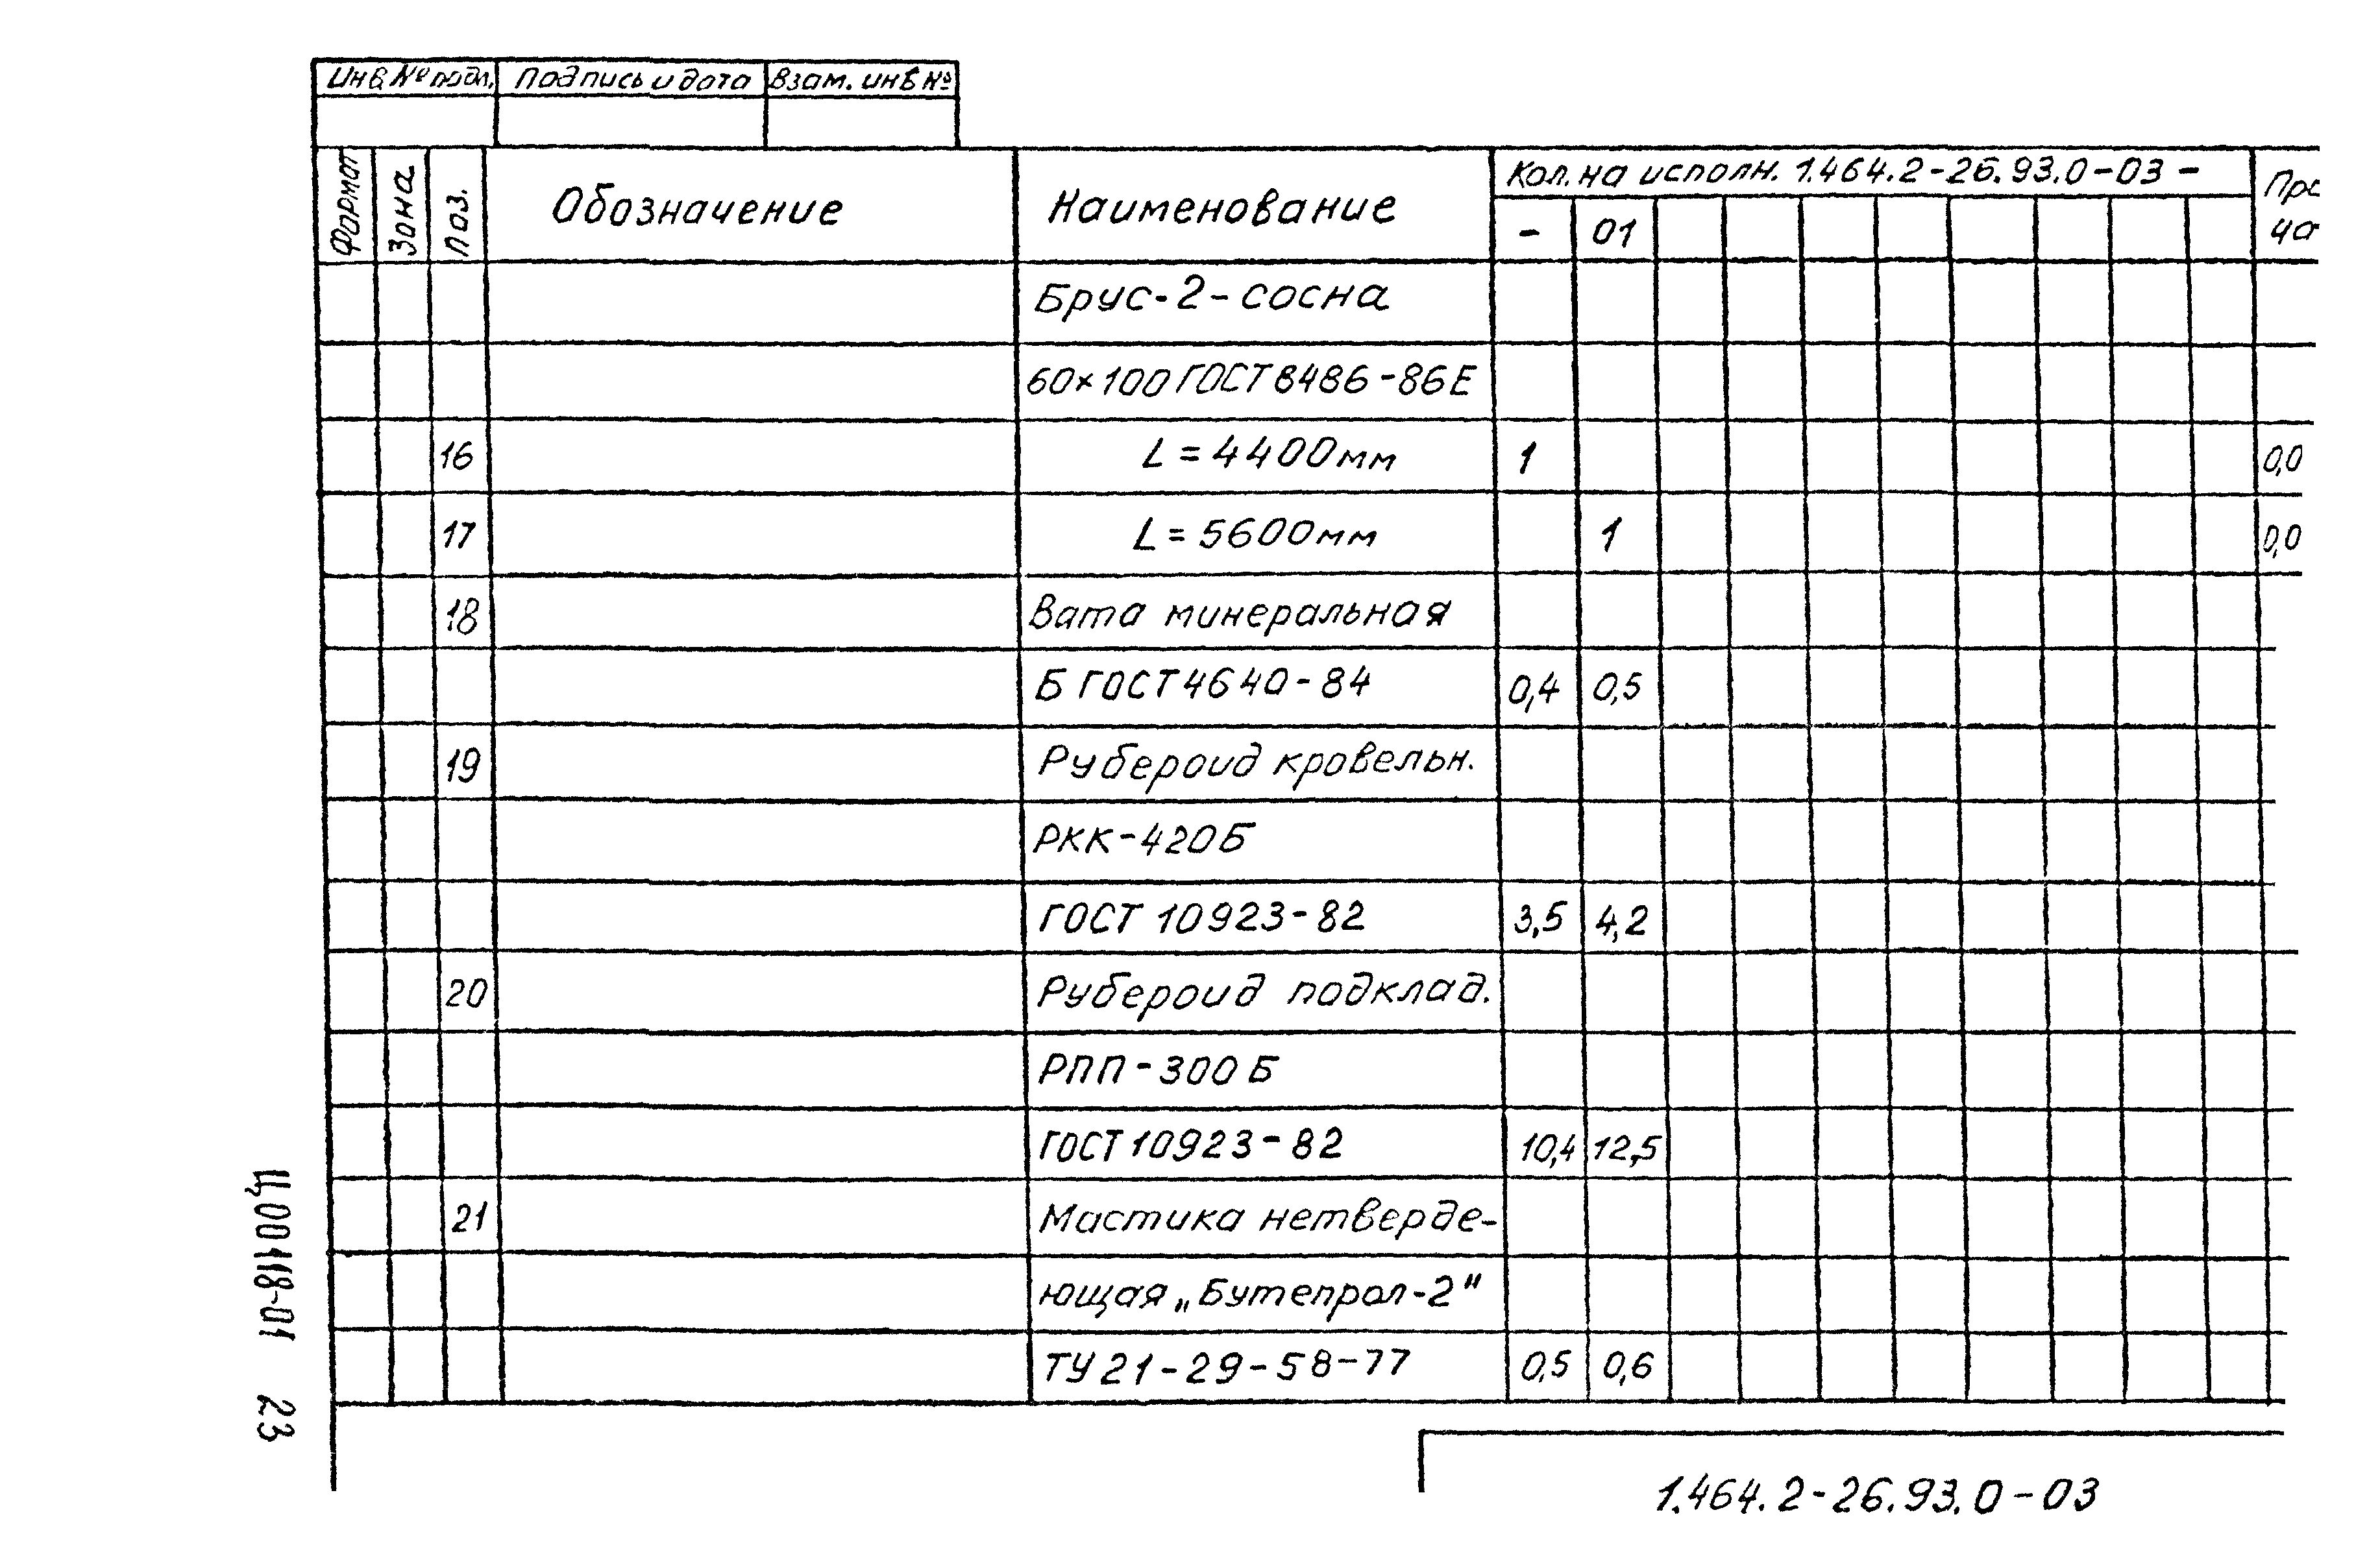 Инв № подл. Подпись и дата Взам. инв №
Формат Зона Поз. Обозначение Наименование Кол. на исполн. 1.464.2-26.93.0-03 -
- 01
Брус-2-сосна
60×100 ГОСТ 8486-86Е
16 L = 4400мм 1 0,0
17 L = 5600мм 1 0,0
18 Вата минеральная
Б ГОСТ 4640-84 0,4 0,5
19 Рубероид кровельн.
РКК-420Б
ГОСТ 10923-82 3,5 4,2
20 Рубероид подклад.
РПП-300Б
ГОСТ 10923-82 10,4 12,5
21 Мастика нетверде-
ющая „Бутепрол-2"
ТУ 21-29-58-77 0,5 0,6
1.464.2-26.93.0-03
Ц00118-01 23